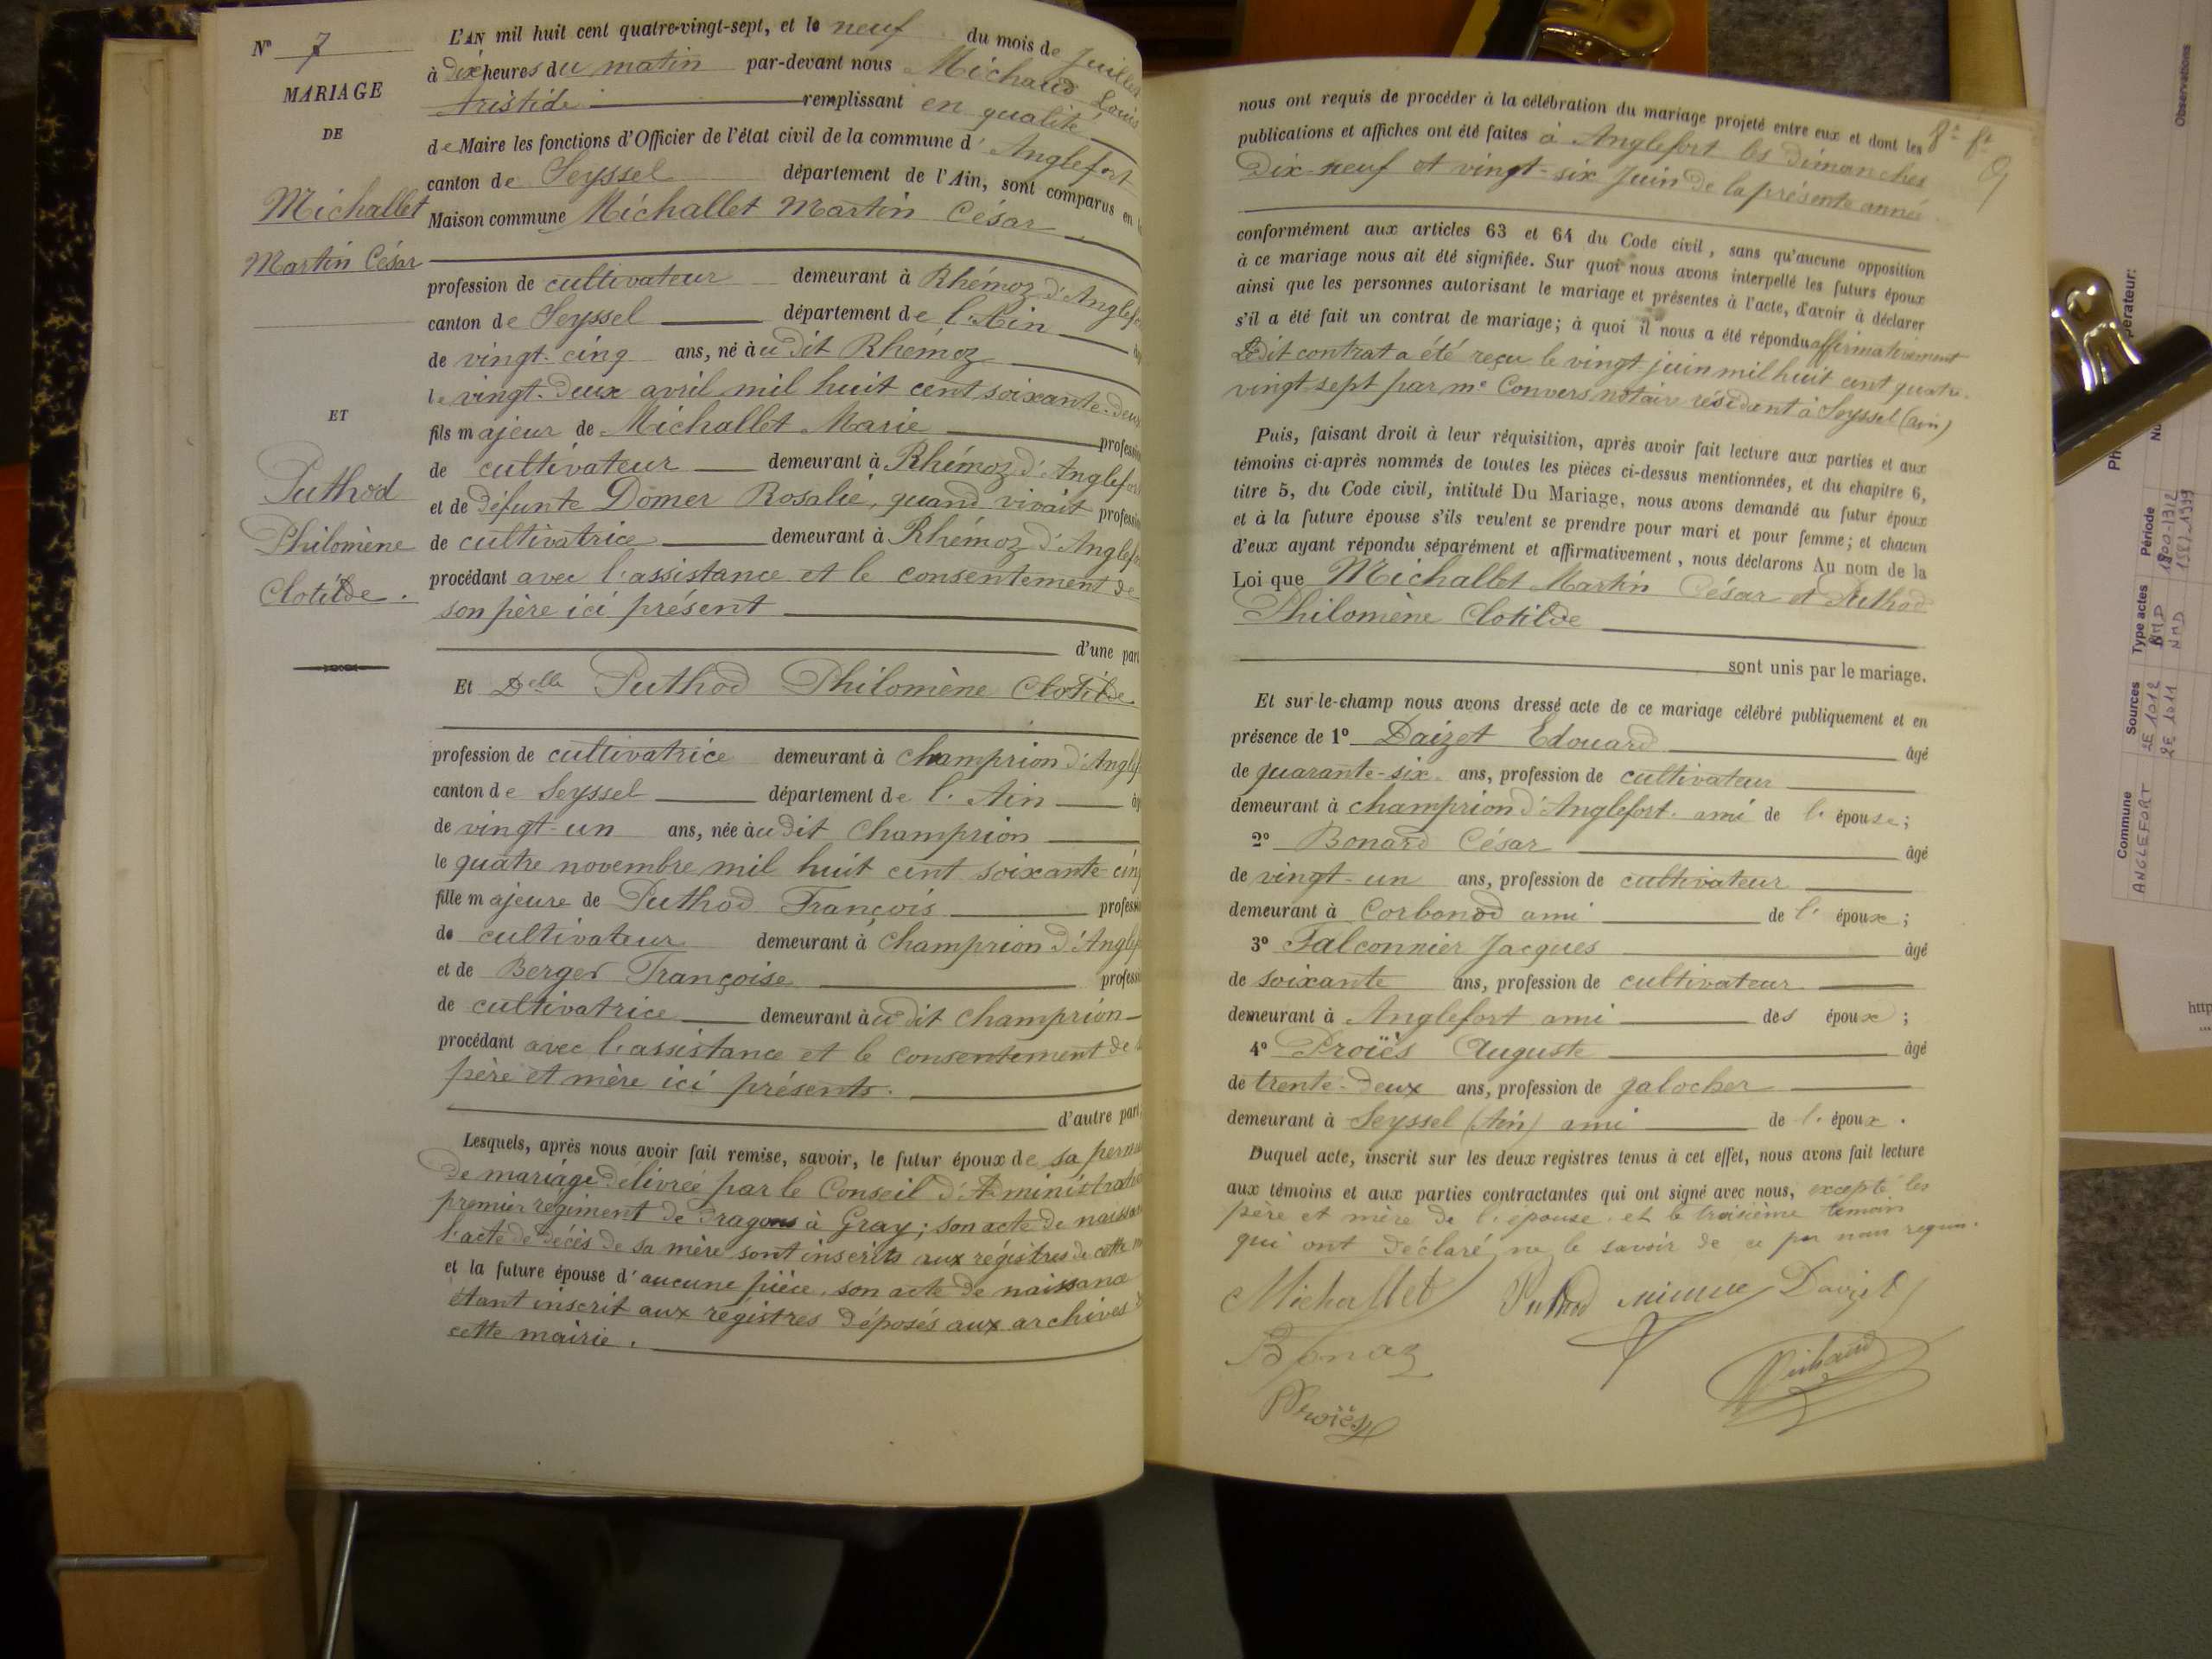 N° 7
MARIAGE
DE
Michallet
Martin César
ET
Puthod
Philomène
Clotilde.
L'AN mil huit cent quatre-vingt-sept, et le neuf du mois de Juillet
à dix heures du matin par-devant nous Michaud Louis
Aristide remplissant en qualité
de Maire les fonctions d'Officier de l'état civil de la commune d'Anglefort
canton de Seyssel département de l'Ain, sont comparus en
Maison commune Michallet Martin César
profession de cultivateur demeurant à Rhémoz d'Anglef
canton de Seyssel département de l'Ain
de vingt-cinq ans, né audit Rhémoz
le vingt-deux avril mil huit cent soixante-deux
fils majeur de Michallet Marie profession
de cultivateur demeurant à Rhémoz d'Anglefort
et de défunte Domer Rosalie, quand vivait profession
de cultivatrice demeurant à Rhémoz d'Anglef
procédant avec l'assistance et le consentement de
son père ici présent
d'une part
Et Delle Puthod Philomène Clotilde
profession de cultivatrice demeurant à Champrion d'Anglef
canton de Seyssel département de l'Ain
de vingt-un ans, née audit Champrion
le quatre novembre mil huit cent soixante-cinq
fille majeure de Puthod François profess
de cultivateur demeurant à Champrion d'Anglef
et de Berger Françoise profess
de cultivatrice demeurant audit Champrion
procédant avec l'assistance et le consentement de
père et mère ici présents.
d'autre part
Lesquels, après nous avoir fait remise, savoir, le futur époux de sa perm
de mariage délivrée par le Conseil d'Administration
premier régiment de Dragons à Gray; son acte de naissan
l'acte de décès de sa mère sont inscrits aux régistres de cette
et la future épouse d'aucune pièce, son acte de naissance
étant inscrit aux registres déposés aux archives
cette mairie.
nous ont requis de procéder à la célébration du mariage projeté entre eux et dont les
publications et affiches ont été faites à Anglefort les dimanches
dix-neuf et vingt-six Juin de la présente année
conformément aux articles 63 et 64 du Code civil, sans qu'aucune opposition
à ce mariage nous ait été signifiée. Sur quoi nous avons interpellé les futurs époux
ainsi que les personnes autorisant le mariage et présentes à l'acte, d'avoir à déclarer
s'il a été fait un contrat de mariage; à quoi il nous a été répondu affirmativement
Ledit contrat a été reçu le vingt juin mil huit cent quatre-
vingt-sept par me Convers notaire résidant à Seyssel (ain)
Puis, faisant droit à leur réquisition, après avoir fait lecture aux parties et aux
témoins ci-après nommés de toutes les pièces ci-dessus mentionnées, et du chapitre 6,
titre 5, du Code civil, intitulé Du Mariage, nous avons demandé au futur époux
et à la future épouse s'ils veulent se prendre pour mari et pour femme; et chacun
d'eux ayant répondu séparément et affirmativement, nous déclarons Au nom de la
Loi que Michallet Martin César et Puthod
Philomène Clotilde
sont unis par le mariage.
Et sur-le-champ nous avons dressé acte de ce mariage célébré publiquement et en
présence de 1° Daizet Edouard âgé
de quarante-six ans, profession de cultivateur
demeurant à Champrion d'Anglefort ami de l'épouse;
2° Bonard César âgé
de vingt-un ans, profession de cultivateur
demeurant à Corbonod ami de l'époux;
3° Falconnier Jacques âgé
de soixante ans, profession de cultivateur
demeurant à Anglefort ami des époux;
4° Proiës Auguste âgé
de trente-deux ans, profession de galocher
demeurant à Seyssel (Ain) ami de l'époux.
Duquel acte, inscrit sur les deux registres tenus à cet effet, nous avons fait lecture
aux témoins et aux parties contractantes qui ont signé avec nous, excepté les
père et mère de l'épouse et le troisième témoin
qui ont déclaré ne le savoir de ce par nous requis.
Michallet Puthod Davizet
Bonaz Michaud
Proiës
Observations
Commune Sources Type actes Période
ANGLEFORT 2E 1012 NMD
2E 1011 NMD
http